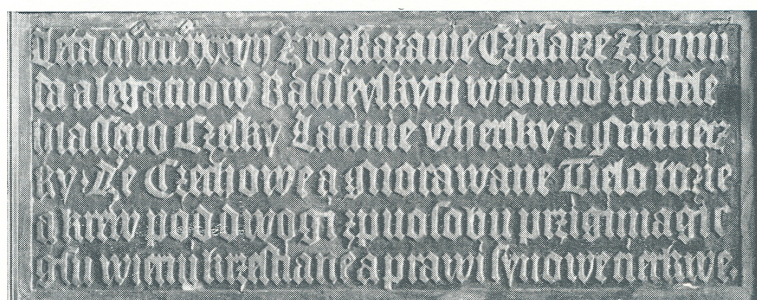 Leta Z rozkazanie Cziesarze Zigmu
da a legatuow Basileyskych w tomto kostele
hlasseno Czesky Latinie Vhersky a Niemecz
ky Ze Czechowe a Morawane Tielo bozie
a krew pod dwogi zpuosobu przigimagic
gsu wierni krzestiane a prawi synowe cierkwe.